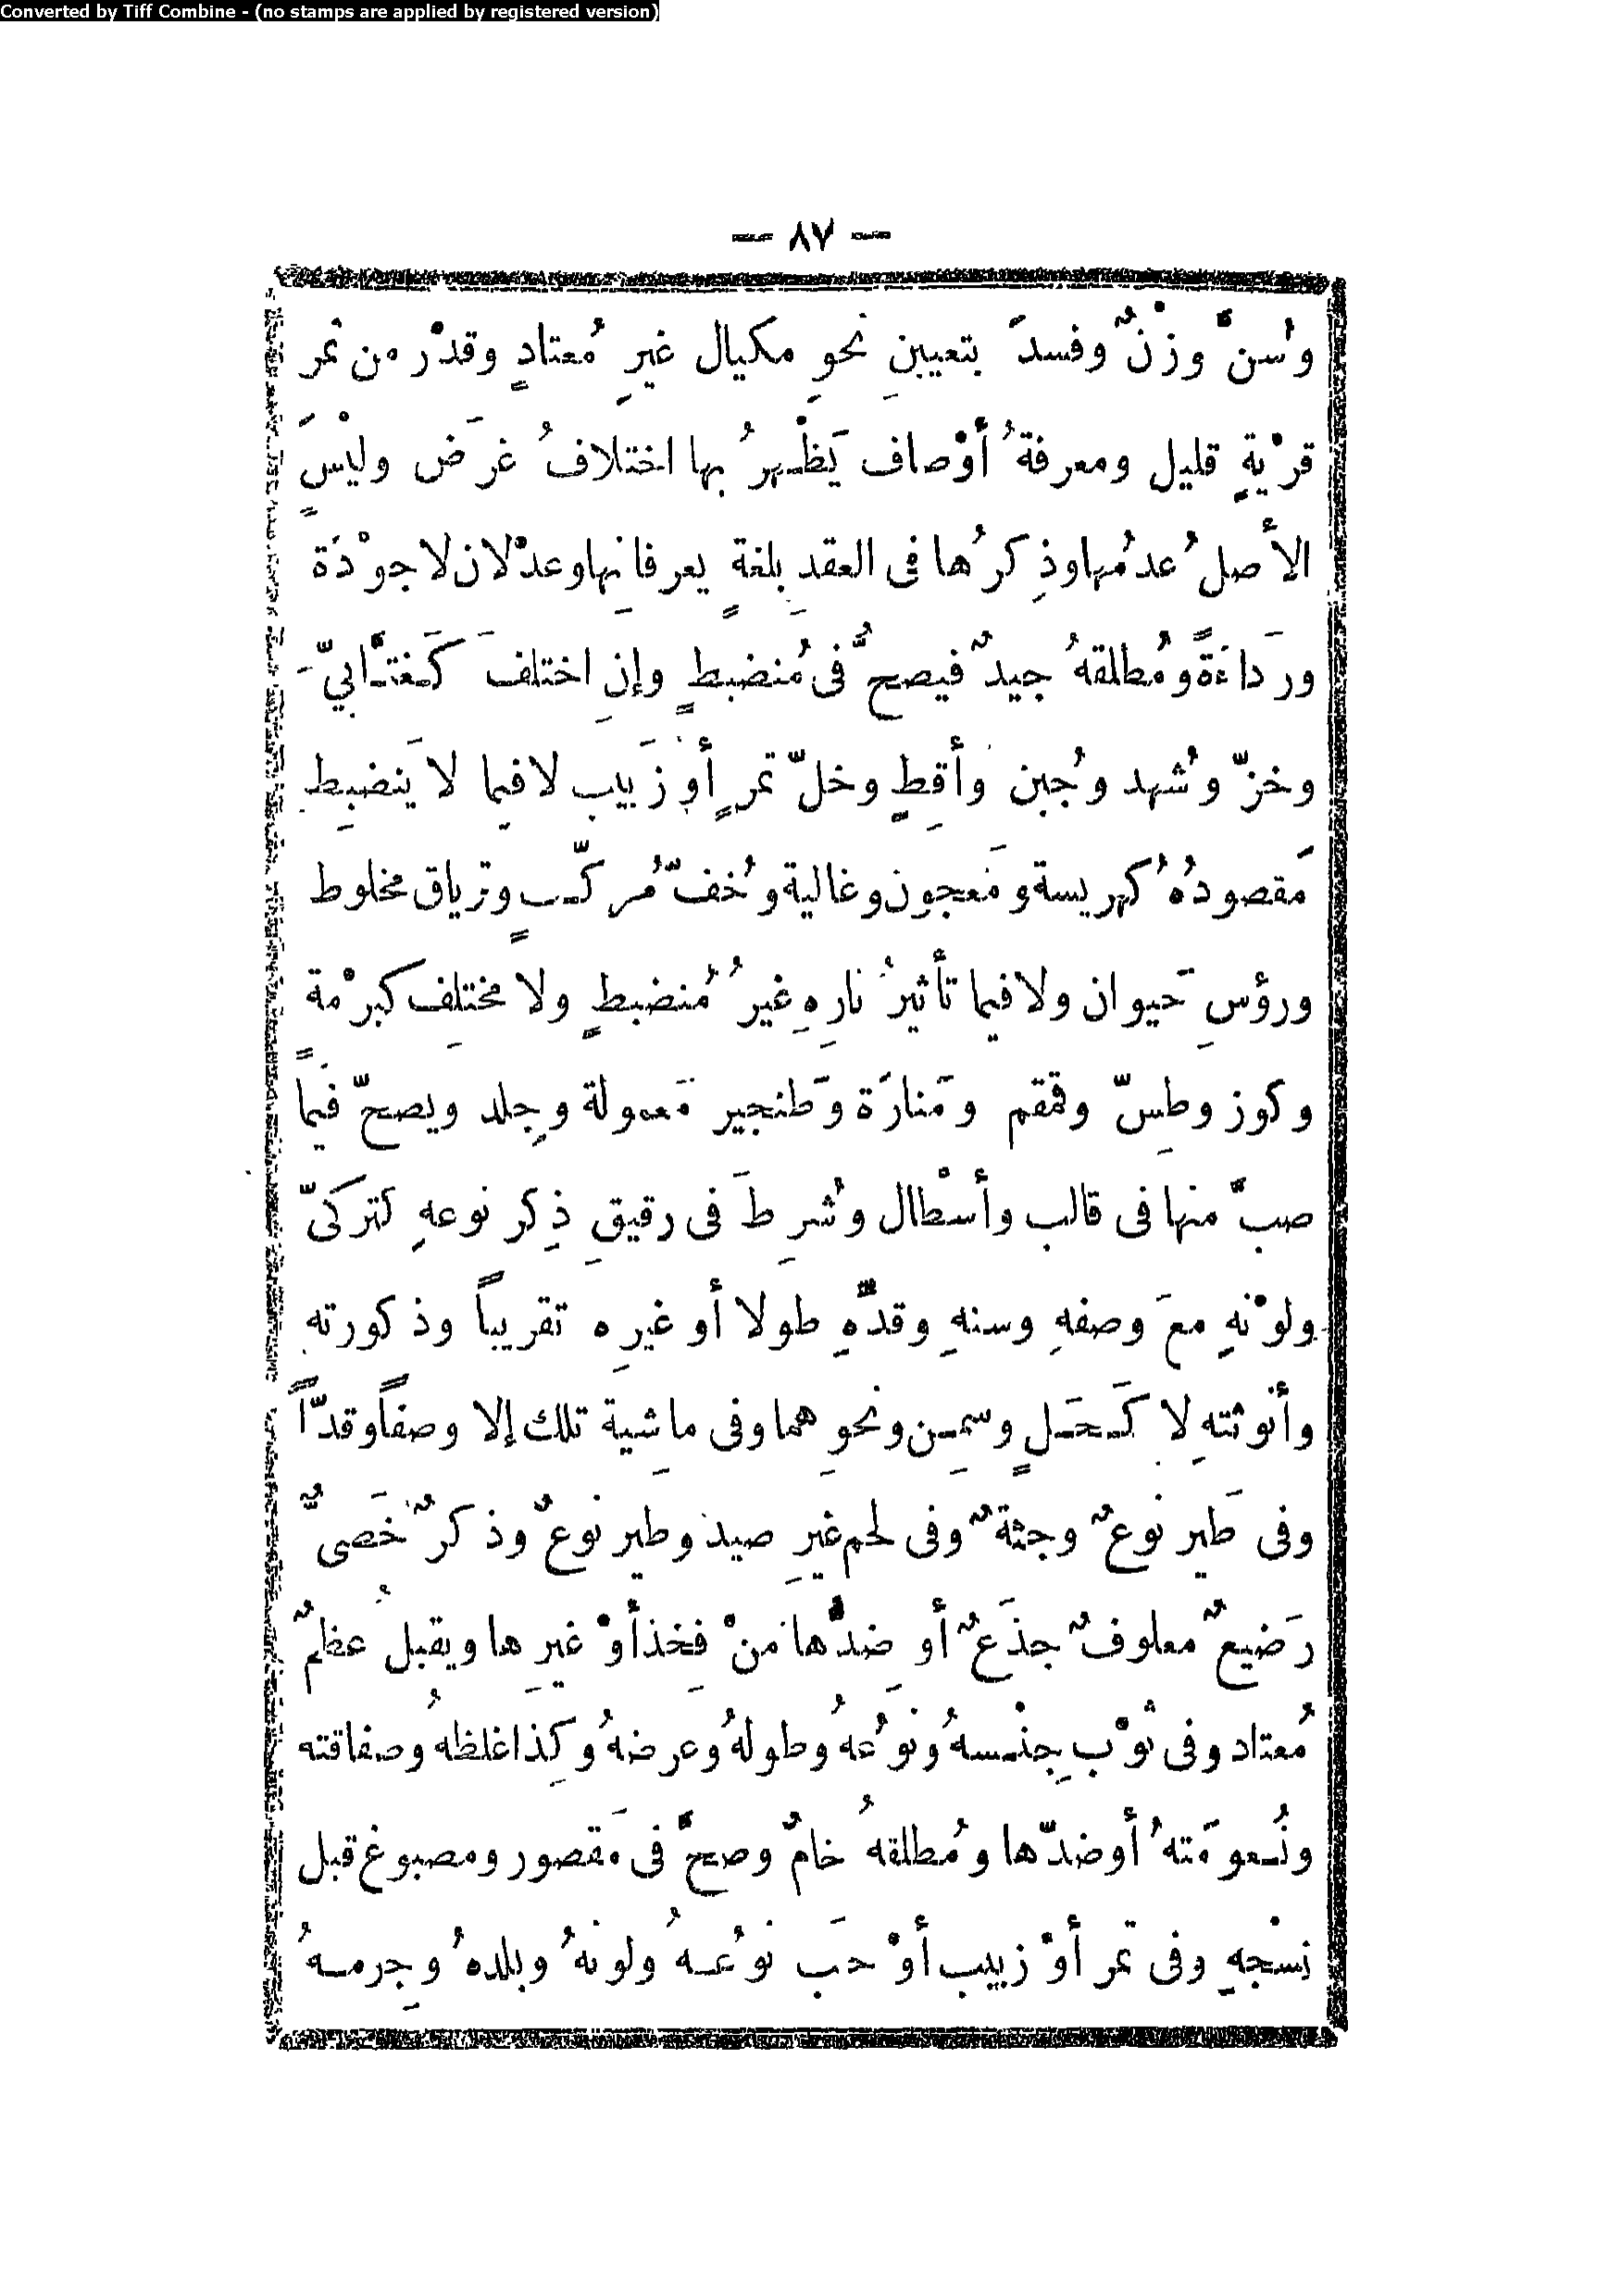 Converted by Tiff Combine - (no stamps are applied by registered version)
— ٨٧ —
وسُنَّ وزْنٌ وفسدَ بتعيينِ نحوِ مكيال غيرِ مُعتادٍ وقدْر من ثمر
قرْيةٍ قليل ومعرفةُ أوْصاف يَظْهرُ بها اختلافُ غرَض وليْسَ
الأصلُ عدمُها وذِكرُها فى العقدِ بلغةٍ يعرفانِها وعدْلان لا جوْدَةً
ورَداءَةً ومُطلقهُ جيدٌ فيصحُّ فى مُنضبطٍ وإنِ اختلفَ كَعَتَّابيّ
وخزّ وشُهد وجُبن وأقِطٍ وخلّ تمرٍ أو زَبيب لا فيما لا يَنضبِط
مَقصودُهُ كهريسةٍ ومَعجون وغالية وخُفّ مُركّبٍ وترياق مخلوط
ورؤسِ حَيوان ولا فيما تأثيرُ نارِهِ غيرُ مُنضبطٍ ولا مختلِف كبرْمةٍ
وكوز وطِسّ وقمقم ومَنارَة وَطنجير مَعمولة وجِلد ويصحّ فيَما
صبَّ منها فى قالب وأسْطال وشُرِطَ فى رقيقٍ ذِكر نوعهِ كتركىّ
ولوْنهِ معَ وصفهِ وسنهِ وقدّهِ طولا أو غيرِه تقريباً وذكورته
وأنوثتهِ لا كَحَلٍ وسِمَن ونحوِهما وفى ماشِية تلك إلا وصفاً وقدّاً
وفى طَير نوعٌ وجثةٌ وفى لحم غيرِ صيد وطير نوعٌ وذكرٌ خَصىٌّ
رَضيعٌ معلوفٌ جذَعٌ أو ضِدُّها منْ فِخذ أوْ غيرِها ويقبلُ عظمٌ
مُعتاد وفى ثوْب جِنْسهُ ونوْعُهُ وطولهُ وعرضهُ وكِذا غلظهُ وصفاقته
ونُعومَتهُ أو ضدّها ومُطلقهُ خامٌ وصحَّ فى مَقصور ومصبوغ قبل
نسْجهِ وفى تمر أوْ زبيب أوْ حَب نوْعُهُ ولونهُ وبلدهُ وجِرمهُ